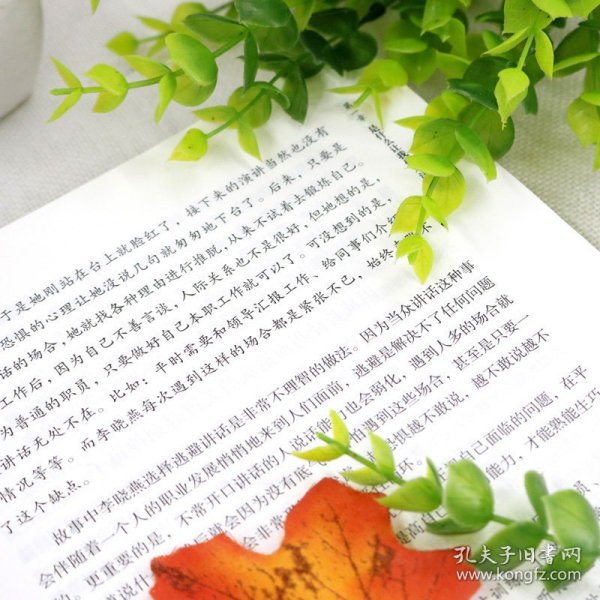 于是她刚站在台上就脸红了,接下来的演讲当然也没有
恐惧的心理让她没说几句就匆匆地下台了。后来,只要是
话的场合,她就找各种理由进行推脱,从来不试着去锻炼自己。
工作后,因为自己不善言谈,人际关系也不是很好,但她想的是,
为普通的职员,只要做好自己本职工作就可以了。可没想到的是,
讲话无处不在。比如:平时需要和领导汇报工作、给同事们介绍
情况等等。而李晓燕每次遇到这样的场合都是紧张不已,始终
了这个缺点。
故事中李晓燕选择逃避讲话是非常不理智的做法。因为当众讲话这种事
会伴随着一个人的职业发展悄悄地来到人们面前,逃避是解决不了任何问题
的。更重要的是,不常开口讲话的人说话能力也会弱化,遇到人多的场合就
后就会因为没有底
遇到这些场合,甚至是只要一
越恐惧越不敢说,越不敢说越不
自己面临的问题,在平
能力,才能熟能生巧
孔夫子旧书网
www.kongfz.com